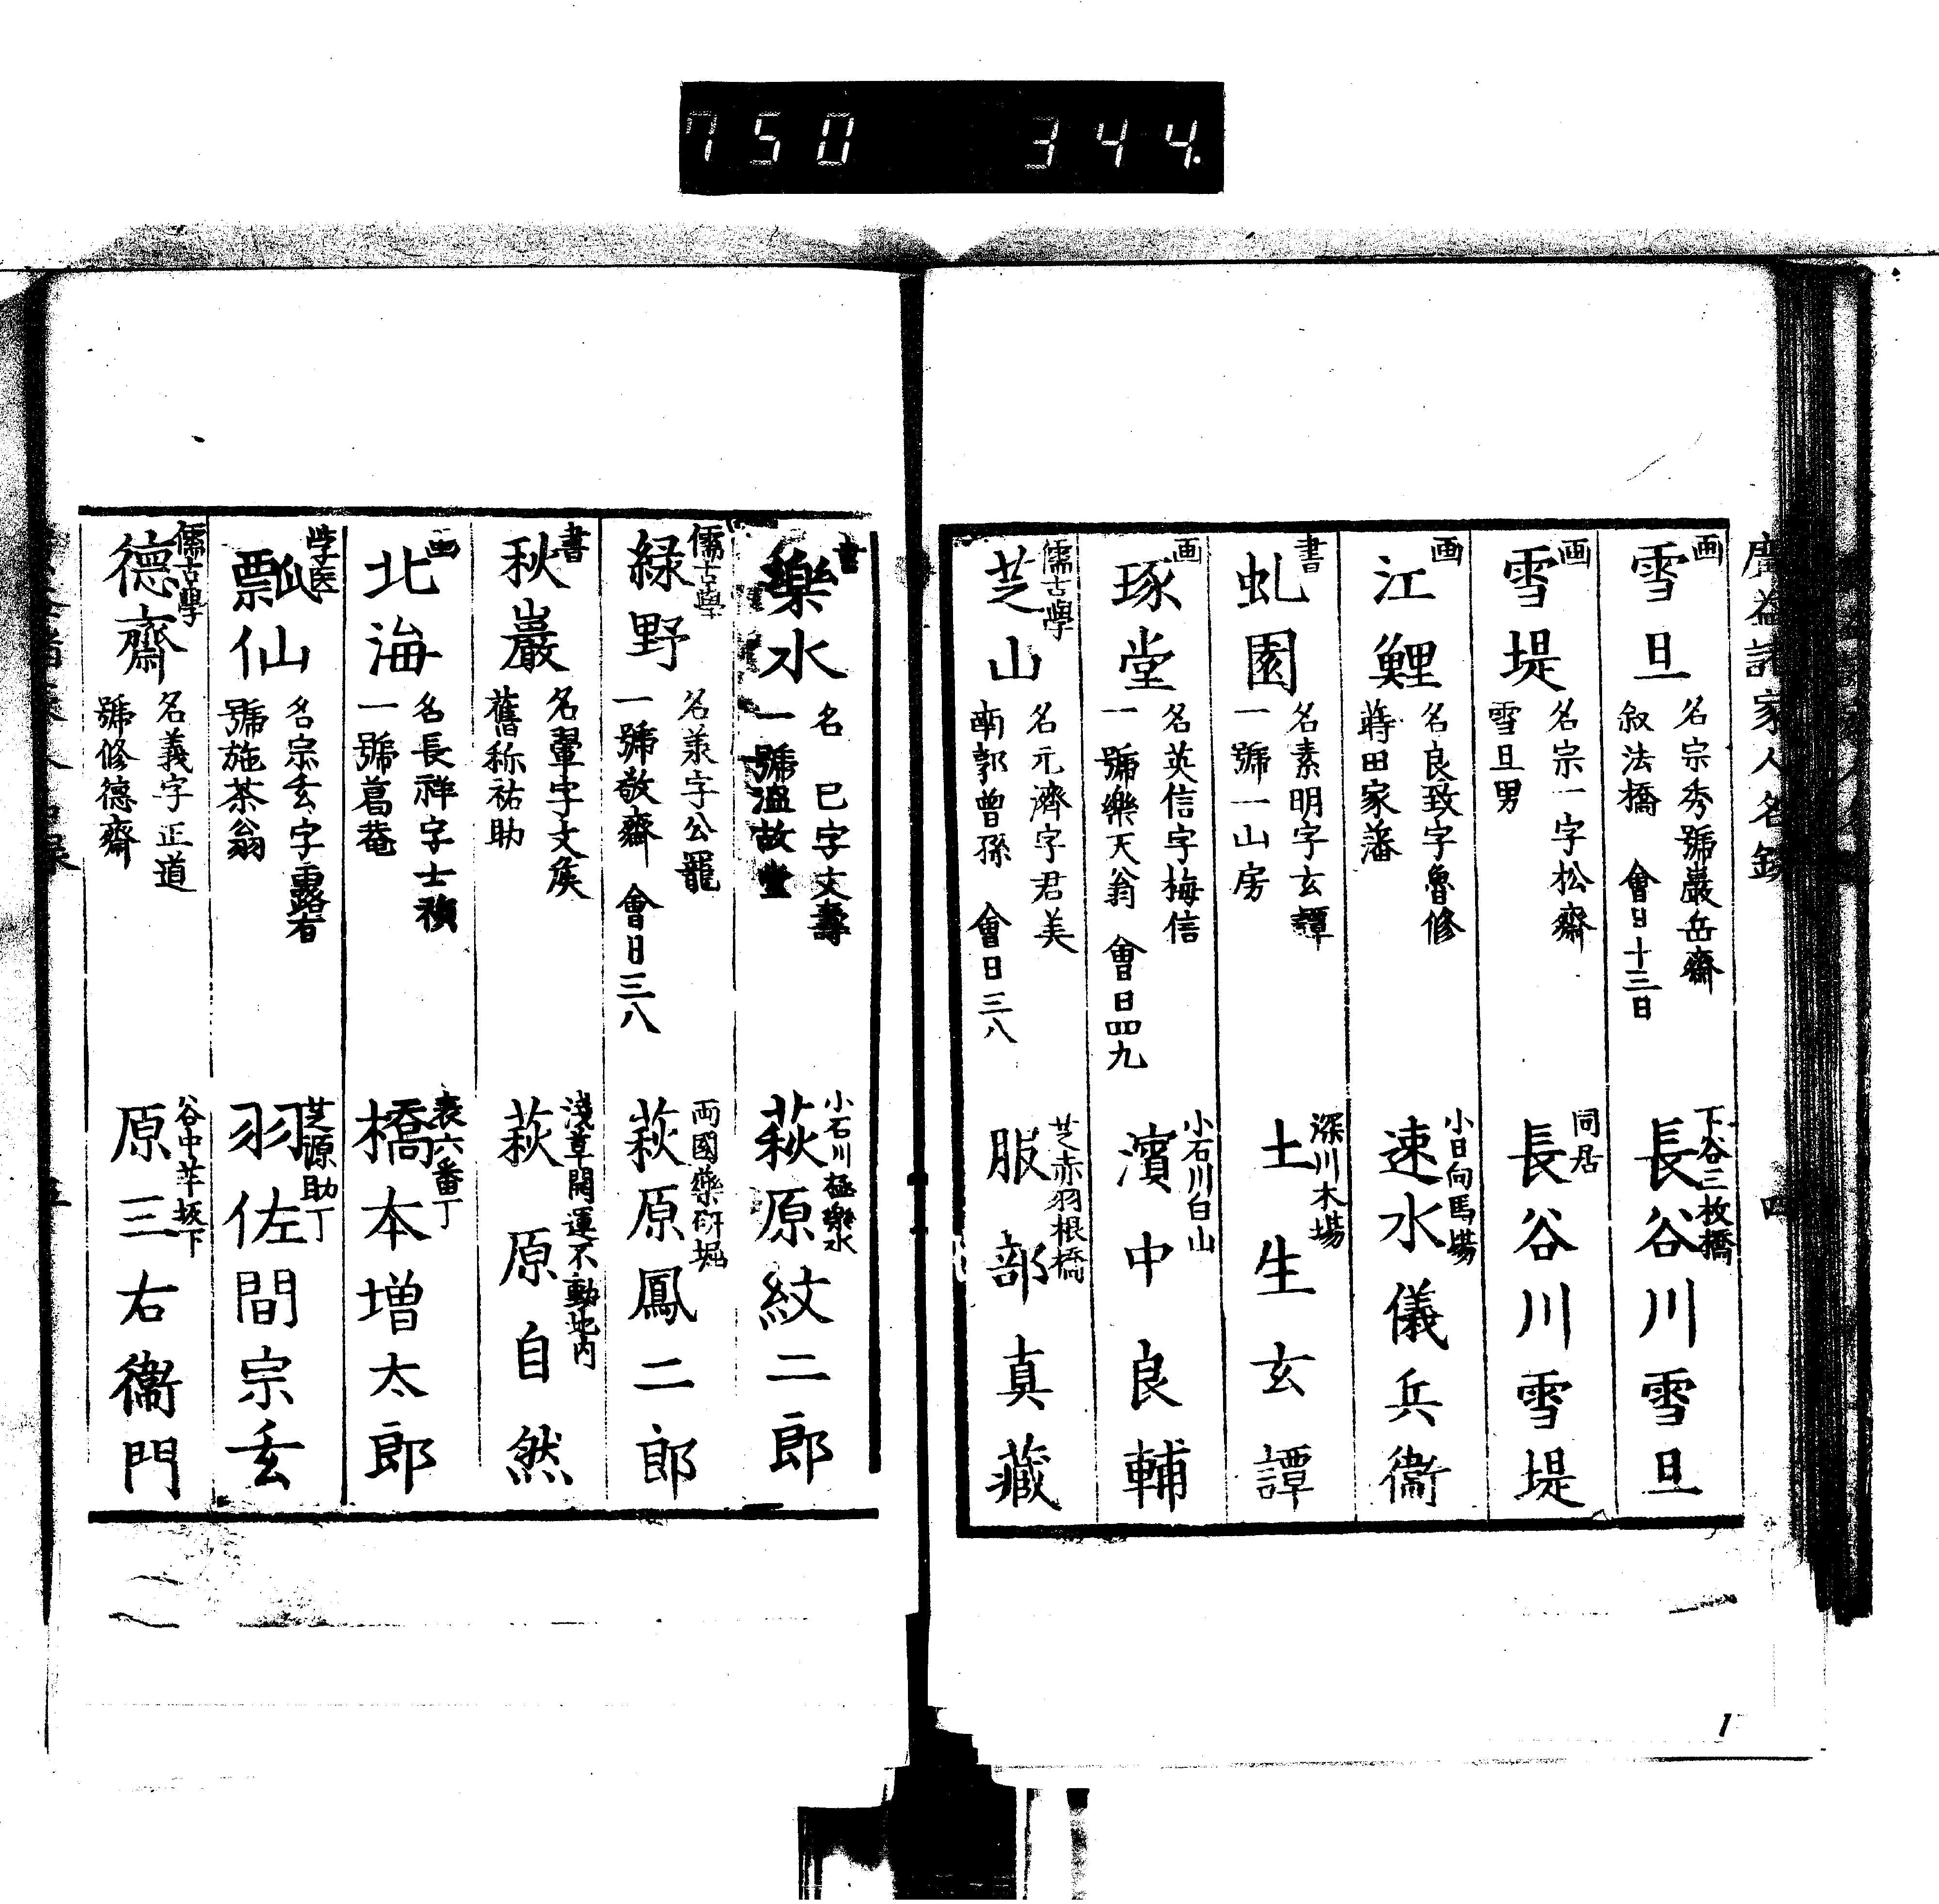 750 344.
廣益諸家人名録
四
画
雪旦
名宗秀號巖岳齋
叙法橋 會日十三日
下谷三枚橋
長谷川雪旦
画
雪堤
名宗一字松齋
雪旦男
同居
長谷川雪堤
画
江鯉
名良致字魯修
蒔田家藩
小日向馬場
速水儀兵衞
書
虬園
名素明字玄譚
一號一山房
深川木場
土生玄譚
画
琢堂
名英信字梅信
一號樂天翁 會日四九
小石川白山
濱中良輔
儒古學
芝山
名元濟字君美
南郭曾孫 會日三八
芝赤羽根橋
服部真藏
書
樂水
名 巳字文壽
一號温故堂
小石川極樂水
萩原紋二郎
儒古學
緑野
名羕字公寵
一號敬齋 會日三八
両國藥研堀
萩原鳳二郎
書
秋巖
名翬字文矦
舊称祐助
淺草開運不動地内
萩原自然
画
北海
名長祥字士禎
一號葛菴
表六番丁
橋本増太郎
学医
瓢仙
名宗玄字露省
號施茶翁
芝源助丁
羽佐間宗玄
儒古學
德齋
名義字正道
號修德齋
谷中芋坂下
原三右衞門
五
1